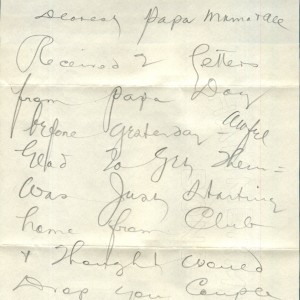 Dearest Papa Mama & all
Received 2 letters
from Papa Day
before yesterday - awful
Glad to Get them =
Was Just starting
home from Club
& thought would
Drop you Couple